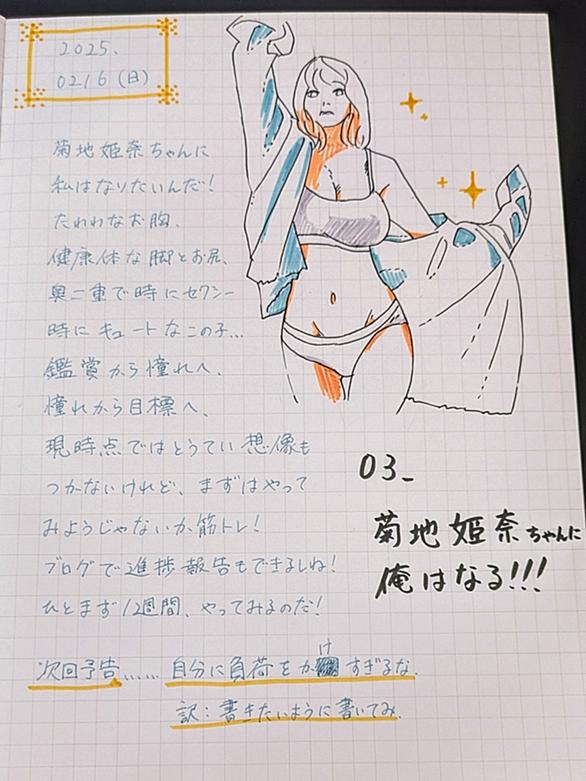 2025.
02/6(日)
菊地姫奈ちゃんに
私はなりたいんだ!
たわわなお胸、
健康体な脚とお尻、
奥二重で時にセクシー
時にキュートなこの子…
鑑賞から憧れへ、
憧れから目標へ、
現時点ではとうてい想像も
つかないけれど、まずはやって
みようじゃないか筋トレ!
ブログで進捗報告もできるしね!
ひとまず12週間、やってみるのだ!
03_
菊地姫奈ちゃんに
俺はなる!!!
次回予告…… 自分に負荷をかけすぎるな。
訳:書きたいように書いてみ。